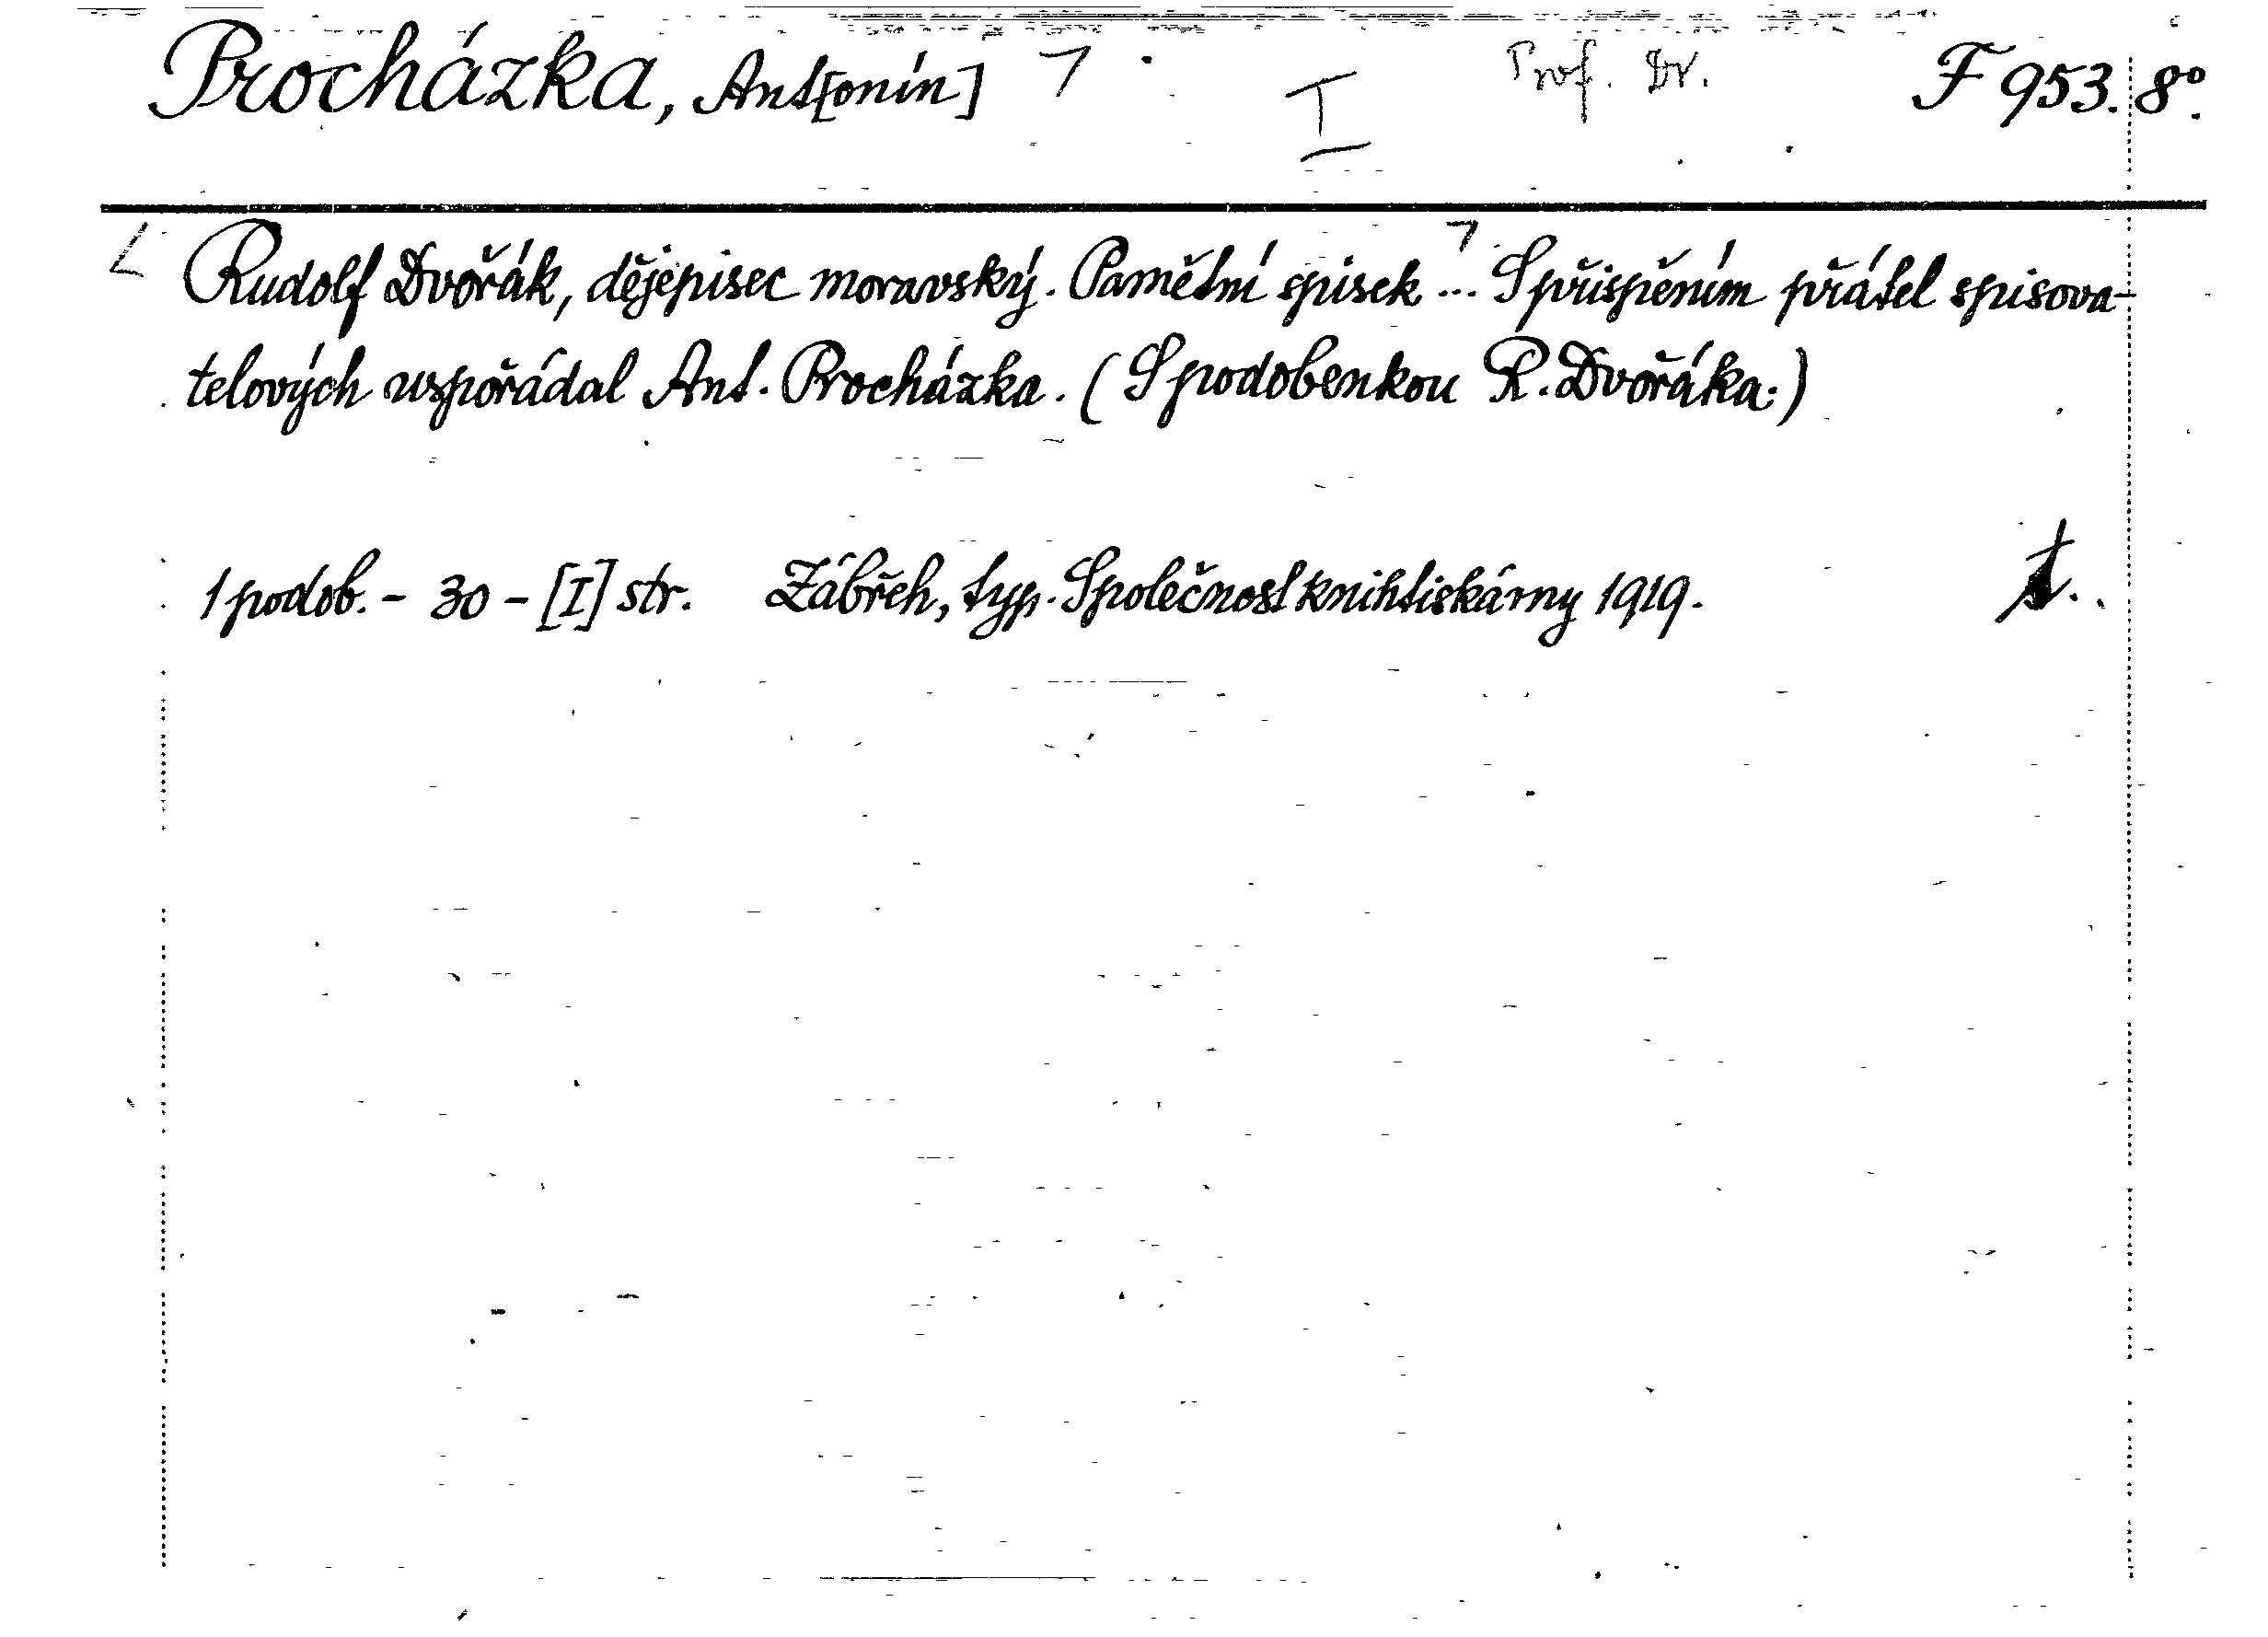 Procházka, Ant[onín] I Prof. Dr. F 953. 8°.
Rudolf Dvořák, dějepisec moravský. Pamětní spisek ... S přispěním přátel spisova-
telových uspořádal Ant. Procházka. (S podobenkou R. Dvořáka.)
1 podob. - 30 - [I] str. Zábřeh, typ. Společnost knihtiskárny 1919.